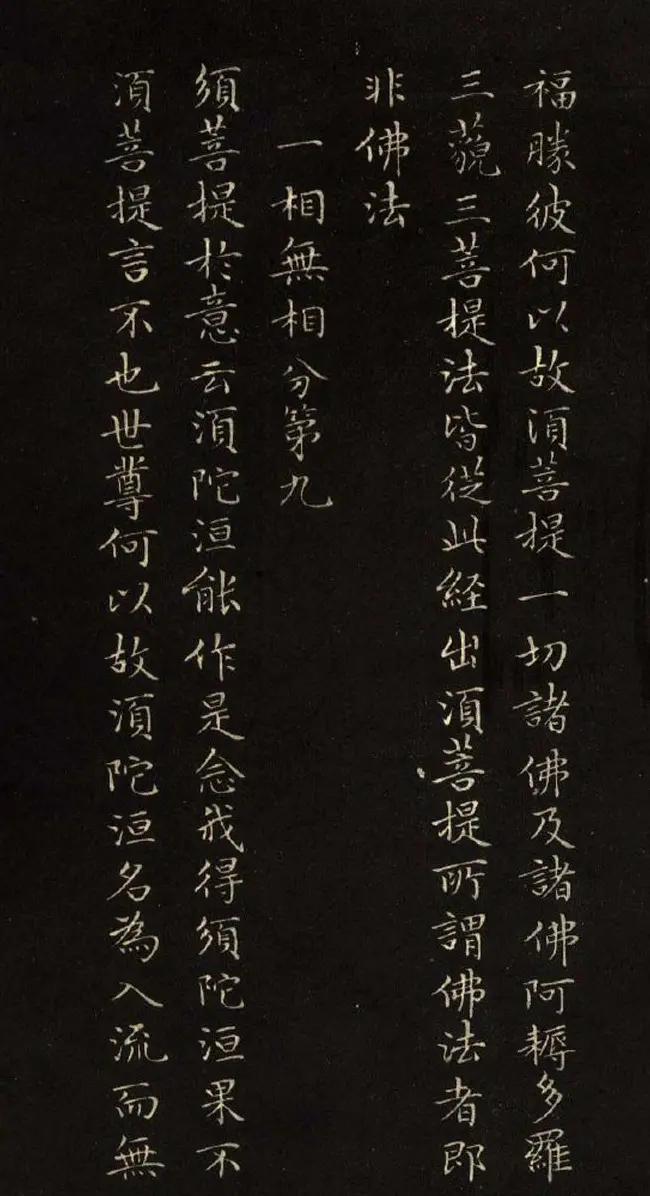 福勝彼何以故須菩提一切諸佛及諸佛阿耨多羅
三藐三菩提法皆從此経出須菩提所謂佛法者即
非佛法
一相無相分第九
須菩提於意云須陀洹能作是念我得須陀洹果不
須菩提言不也世尊何以故須陀洹名為入流而無